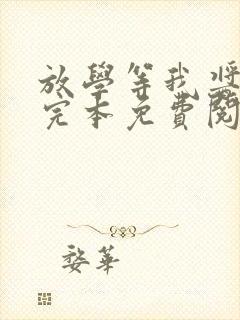 放學等我
完本免費閱
婺華